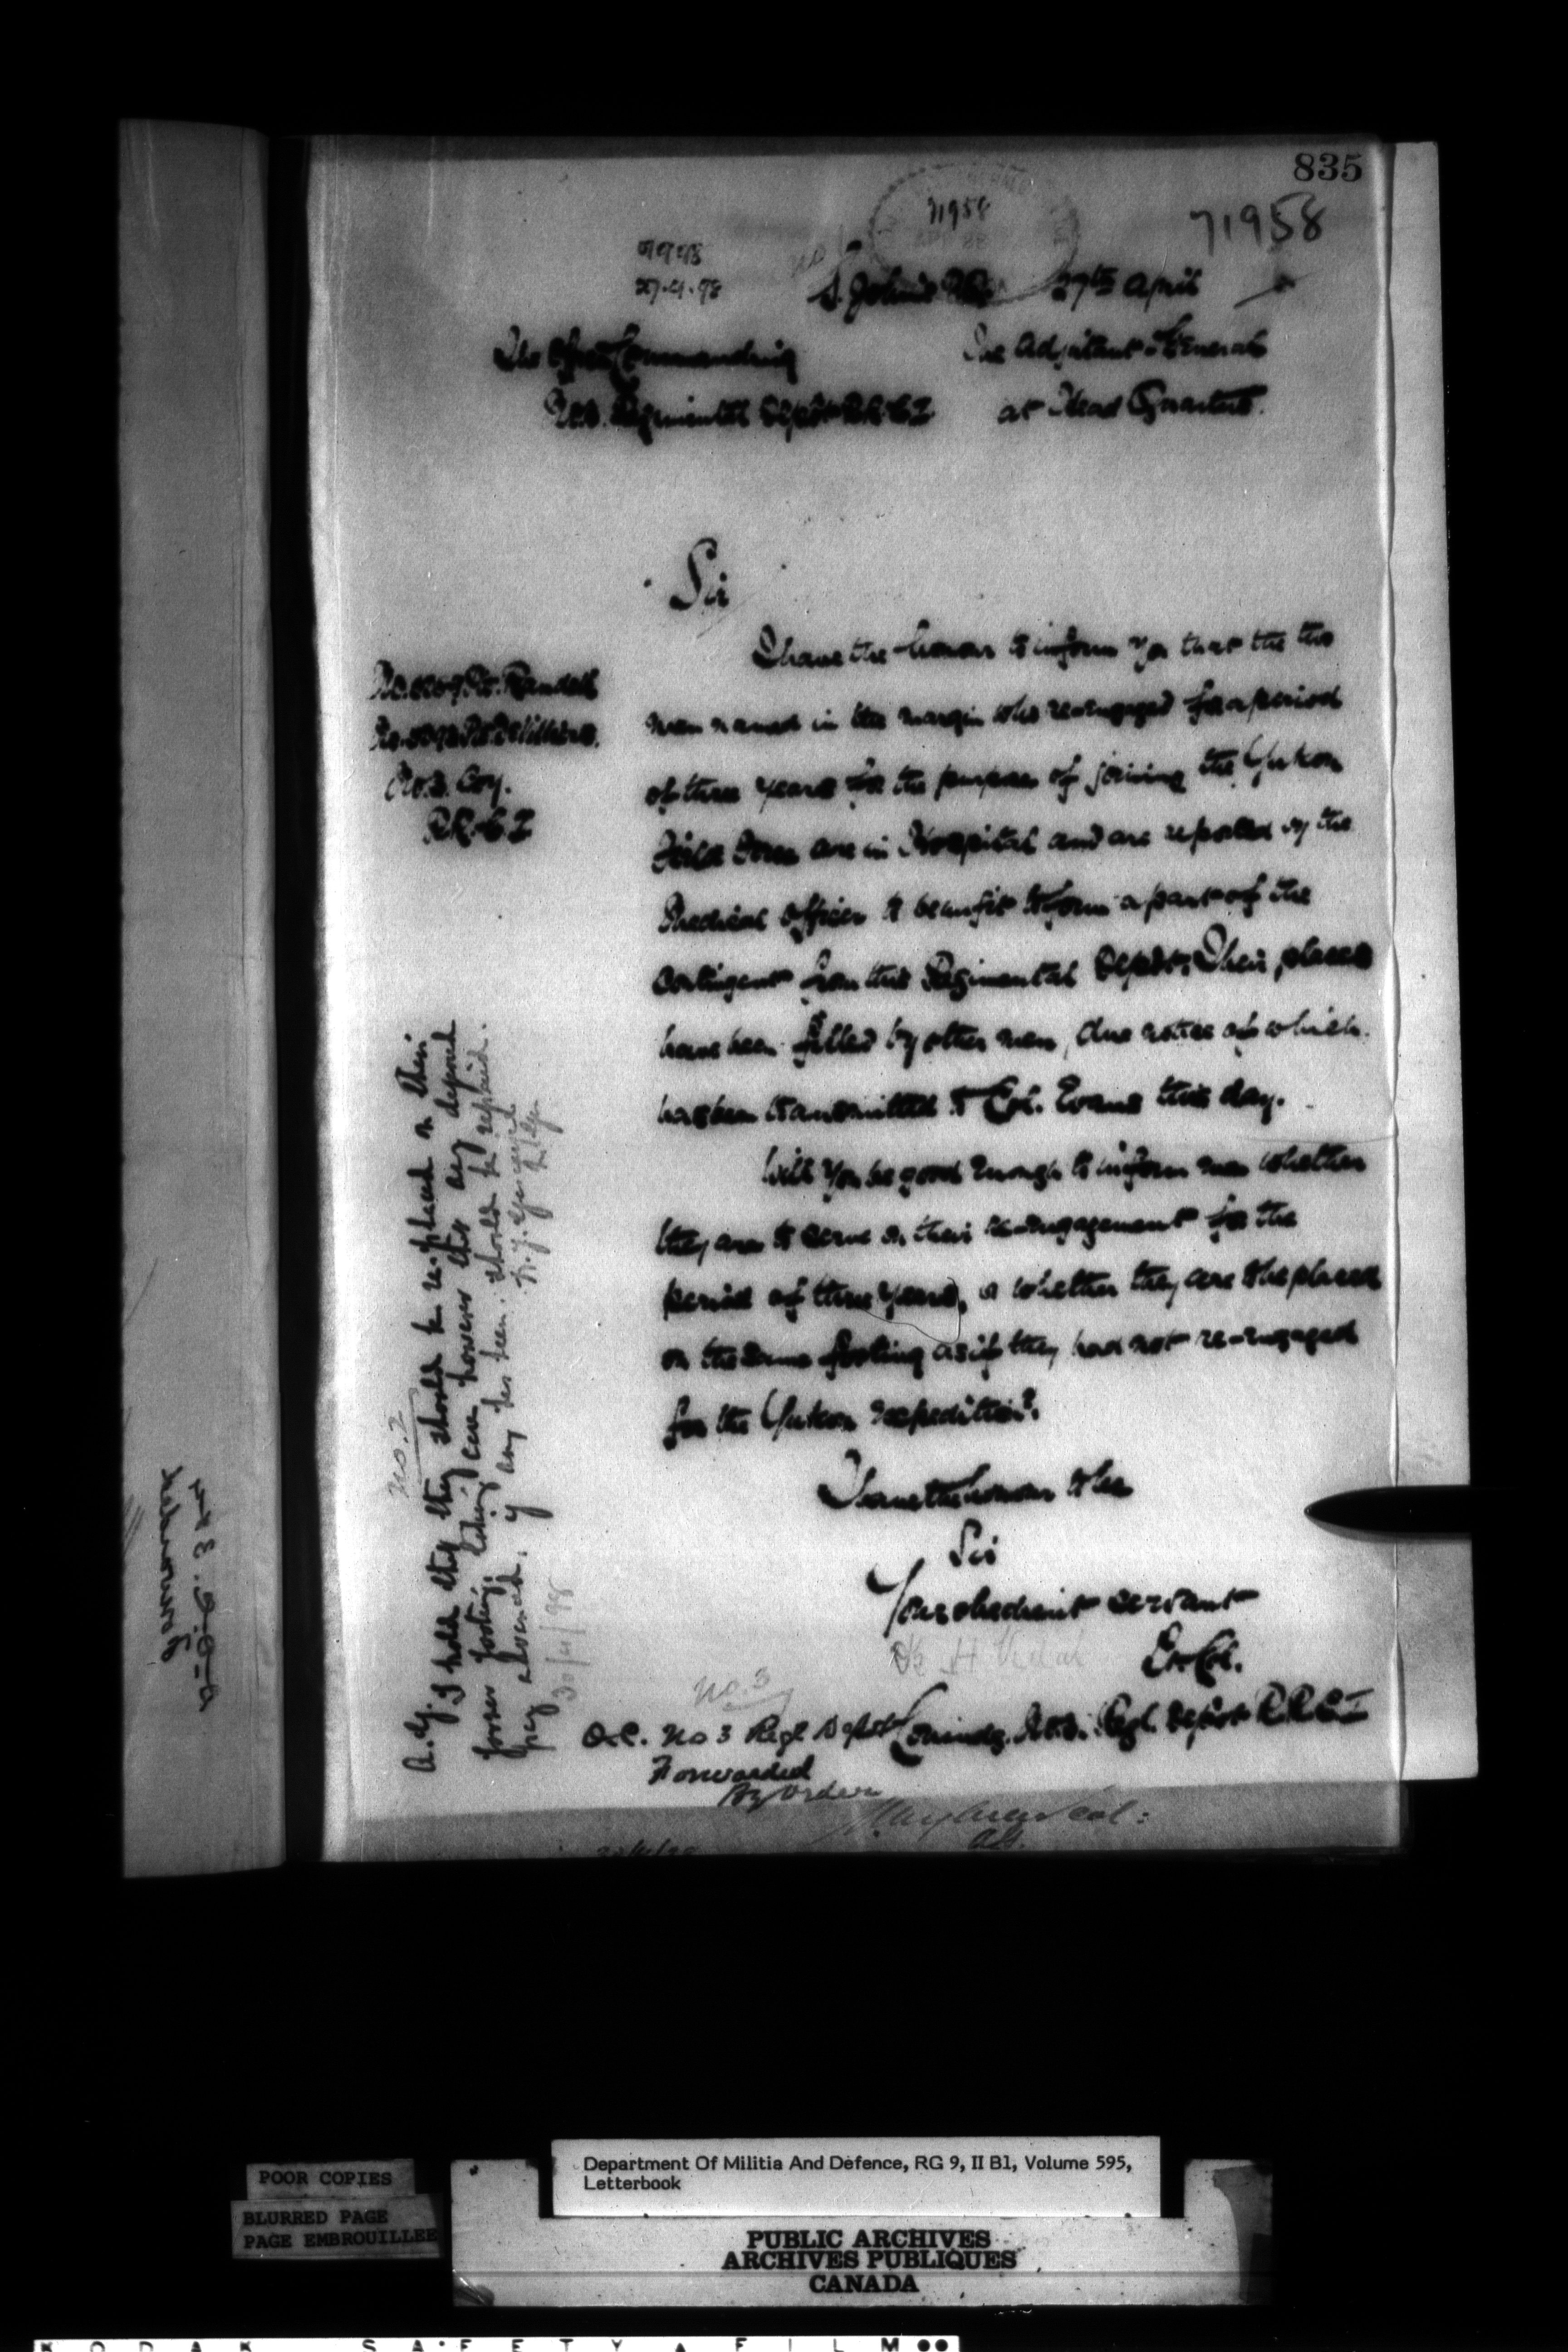 835
71958
71958
27.4.98
St. Johns 27th April
The Officer Commanding
No. 3. Regimental Depôt R.R.C.I
The Adjutant General
at Head Quarters.
Sir
I have the honour to inform you that the two
men named in the margin who re-engaged for a period
of three years for the purpose of joining the Yukon
Field Force are in Hospital and are reported by the
Medical Officer to be unfit to form a part of the
Contingent from this Regimental Depôt. Their places
have been filled by other men, due notice of which
has been transmitted to Col. Evans this day.
Will you be good enough to inform me whether
they are to serve on their re-engagement for the
period of three years, or whether they are to be placed
on the same footing as if they had not re-engaged
for the Yukon expedition?
I have the honour to be
Sir
Your obedient servant
Lt. Col.
Commdg. No. 3. Regl. Depôt R.R.C.I
Pte. Randall
No. 3. Coy.
R.R.C.I
No. 2
A.G. I hold that they should be re-placed on their
former footing, taking care however that any deferred
pay advanced, if any has been, should be repaid.
30/4/98
No. 3
O.C. No 3 Regl Depôt
Forwarded
By Order
Col:
A.G.
Forwarded
POOR COPIES
BLURRED PAGE
PAGE EMBROUILLEE
Department Of Militia And Defence, RG 9, II B1, Volume 595,
Letterbook
PUBLIC ARCHIVES
ARCHIVES PUBLIQUES
CANADA
KODAK SAFETY FILM